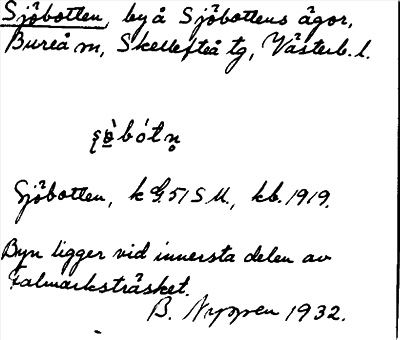 Sjöbotten, by å Sjöbottens ägor,
Bureå sn, Skellefteå tg, Västerb. l.
Sjöbotten, k G.51 S U., kb. 1919.
Byn ligger vid innersta delen av
Falmarksträsket.
B. Nyppen 1932.